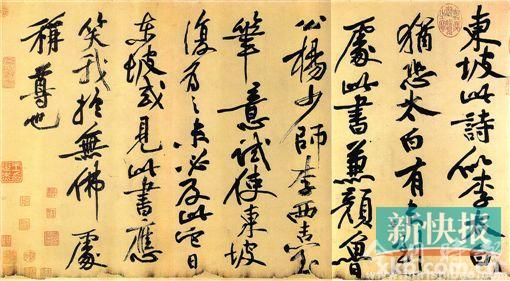 東坡此詩似李太白
猶恐太白有未
處此書兼顏魯
公楊少師李西臺
筆意試使東坡
復為之未必及此它日
東坡或見此書應
笑我於無佛處
稱尊也
新快报